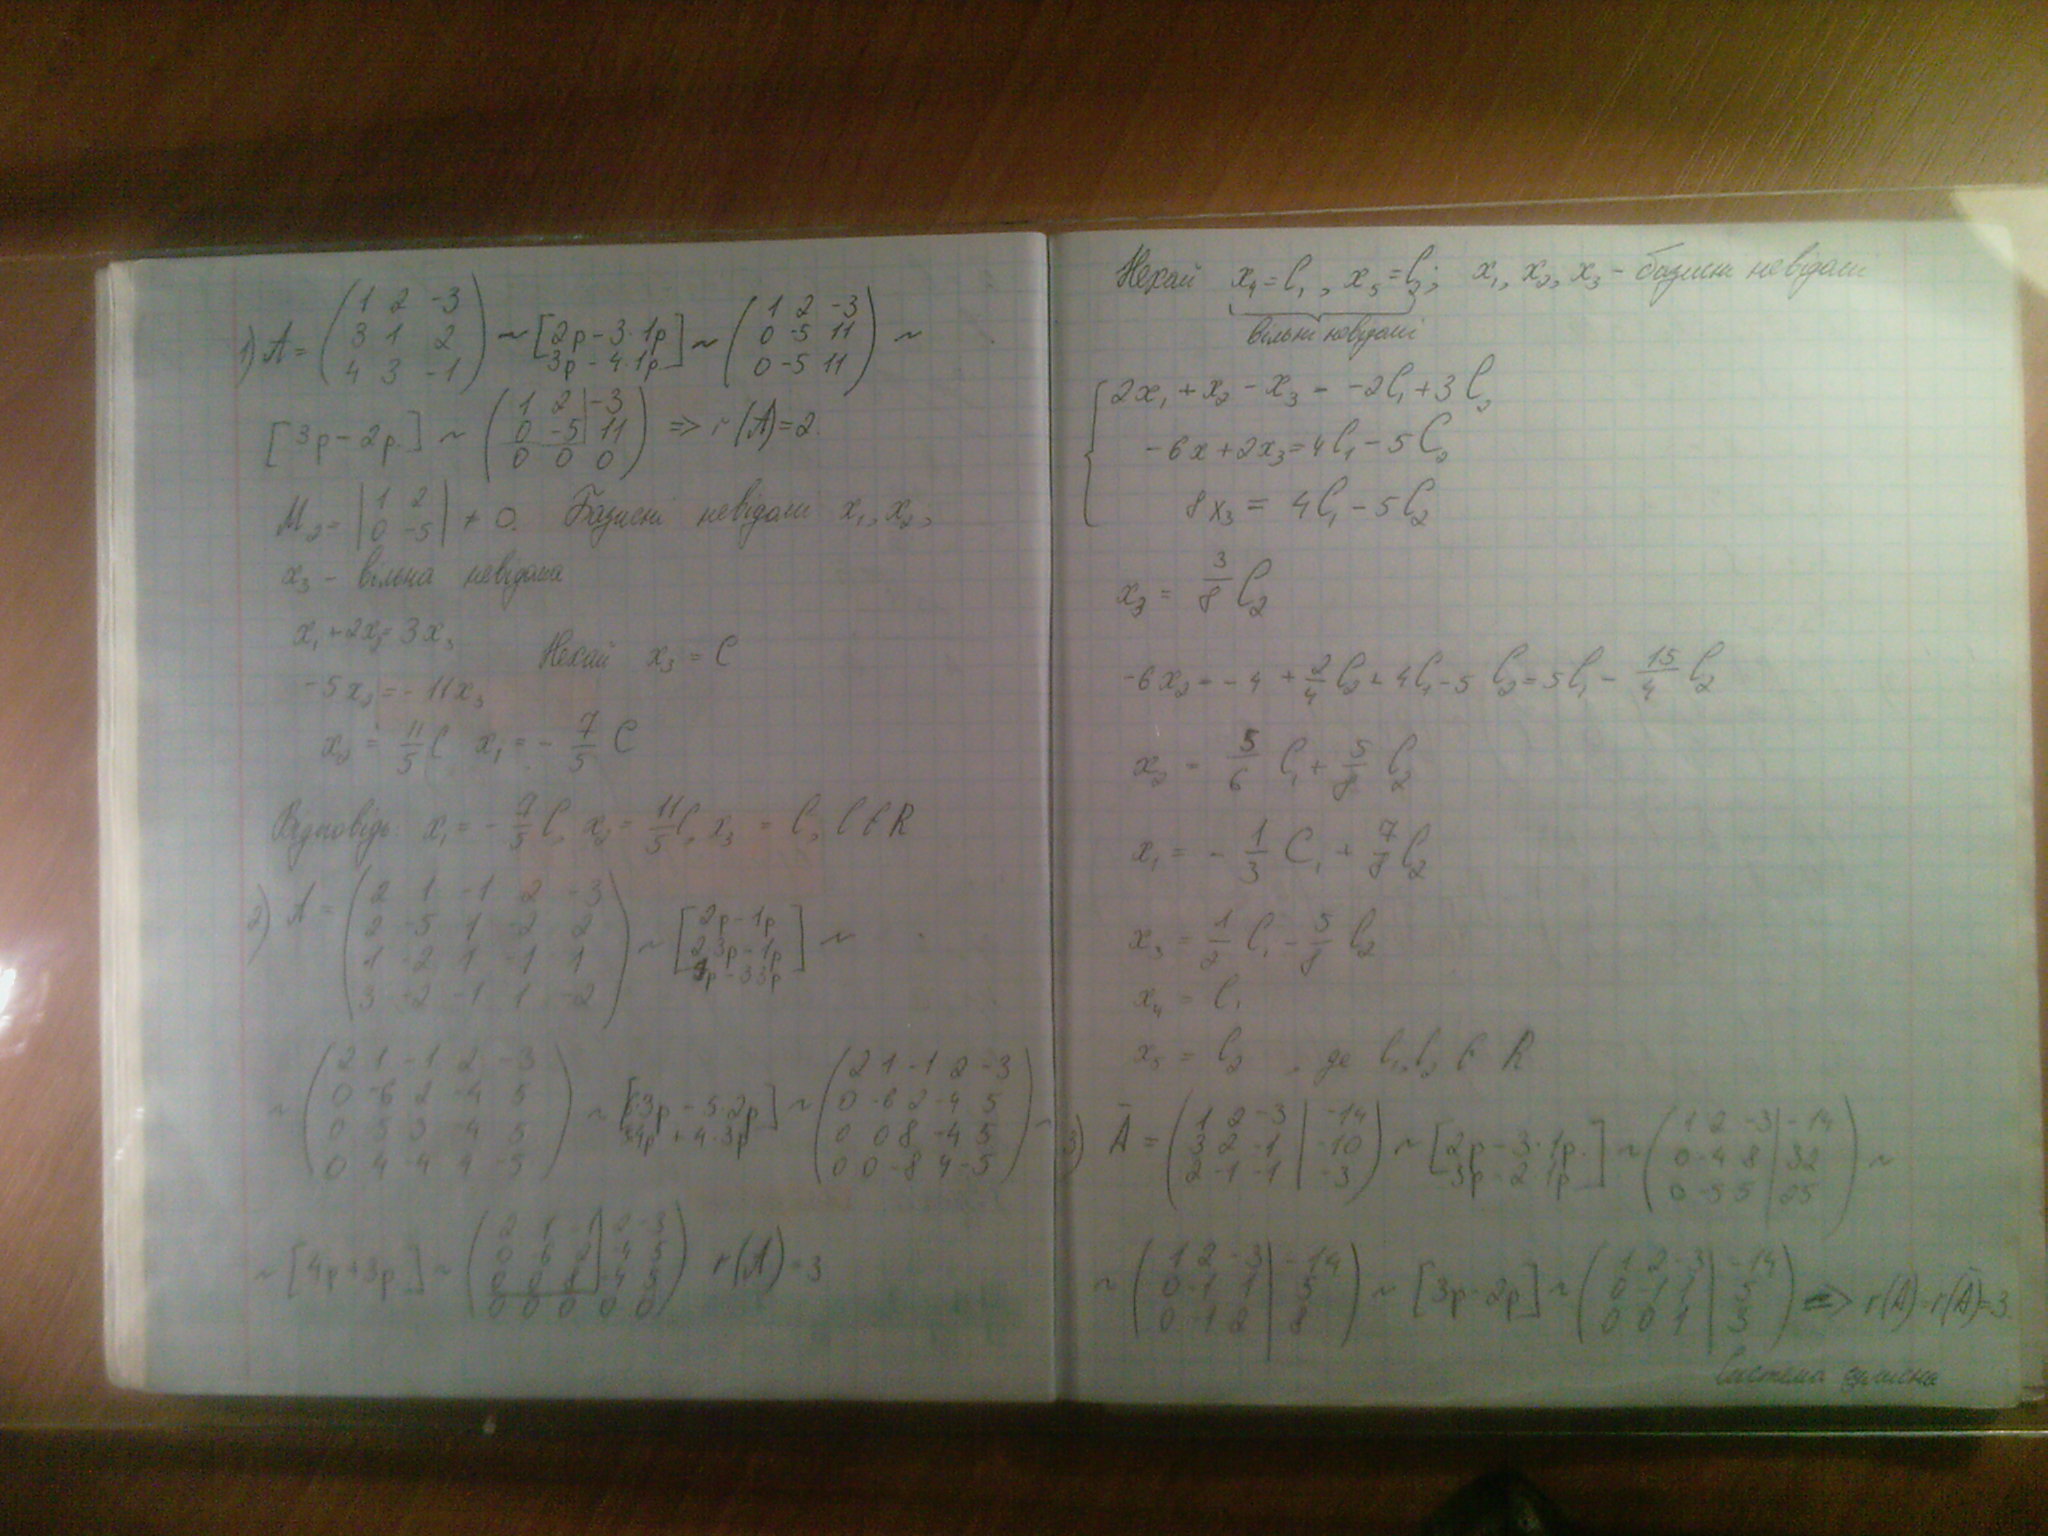 1) A = (1 2 -3; 3 1 2; 4 3 -1) ~ [2р - 3·1р; 3р - 4·1р] ~ (1 2 -3; 0 -5 11; 0 -5 11) ~
[3р - 2р.] ~ (1 2 | -3; 0 -5 | 11; 0 0 0) => r(A) = 2.
M₂ = |1 2; 0 -5| ≠ 0. Базисні невідомі x₁, x₂,
x₃ - вільна невідома
x₁ + 2x₂ = 3x₃
Нехай x₃ = C
-5x₂ = -11x₃
x₂ = 11/5 C x₁ = - 7/5 C
Відповідь: x₁ = - 7/5 C, x₂ = 11/5 C, x₃ = C, C ∈ R
2) A = (2 1 -1 2 -3; 2 -5 1 -2 2; 1 -2 1 -1 1; 3 -2 -1 1 -2) ~ [2р - 1р; 2·3р - 1р; р - 3 3р] ~
~ (2 1 -1 2 -3; 0 -6 2 -4 5; 0 5 3 -4 5; 0 4 -4 4 -5) ~ [6·3р - 5·2р; 4р + 4·3р] ~ (2 1 -1 2 -3; 0 -6 2 -4 5; 0 0 8 -4 5; 0 0 -8 4 -5) ~
~ [4р + 3р.] ~ (2 1 -1 2 -3; 0 -6 2 -4 5; 0 0 8 -4 5; 0 0 0 0 0) r(A) = 3
Нехай x₄ = C₁, x₅ = C₂; x₁, x₂, x₃ - базисні невідомі
вільні невідомі
2x₁ + x₂ - x₃ = -2C₁ + 3C₂
-6x + 2x₃ = 4C₁ - 5C₂
8x₃ = 4C₁ - 5C₂
x₃ = 3/8 C₂
-6x₂ = -4 + 2/4 C₂ + 4C₁ - 5 C₂ = 5C₁ - 15/4 C₂
x₂ = 5/6 C₁ + 5/8 C₂
x₁ = - 1/3 C₁ + 7/8 C₂
x₃ = 1/2 C₁ - 5/8 C₂
x₄ = C₁
x₅ = C₂, де C₁, C₂ ∈ R
3) Ā = (1 2 -3 | -14; 3 2 -1 | -10; 2 -1 -1 | -3) ~ [2р - 3·1р.; 3р - 2·1р] ~ (1 2 -3 | -14; 0 -4 8 | 32; 0 -5 5 | 25) ~
~ (1 2 -3 | -14; 0 -1 1 | 5; 0 -1 2 | 8) ~ [3р - 2р] ~ (1 2 -3 | -14; 0 -1 1 | 5; 0 0 1 | 3) => r(A) = r(Ā) = 3.
Система сумісна